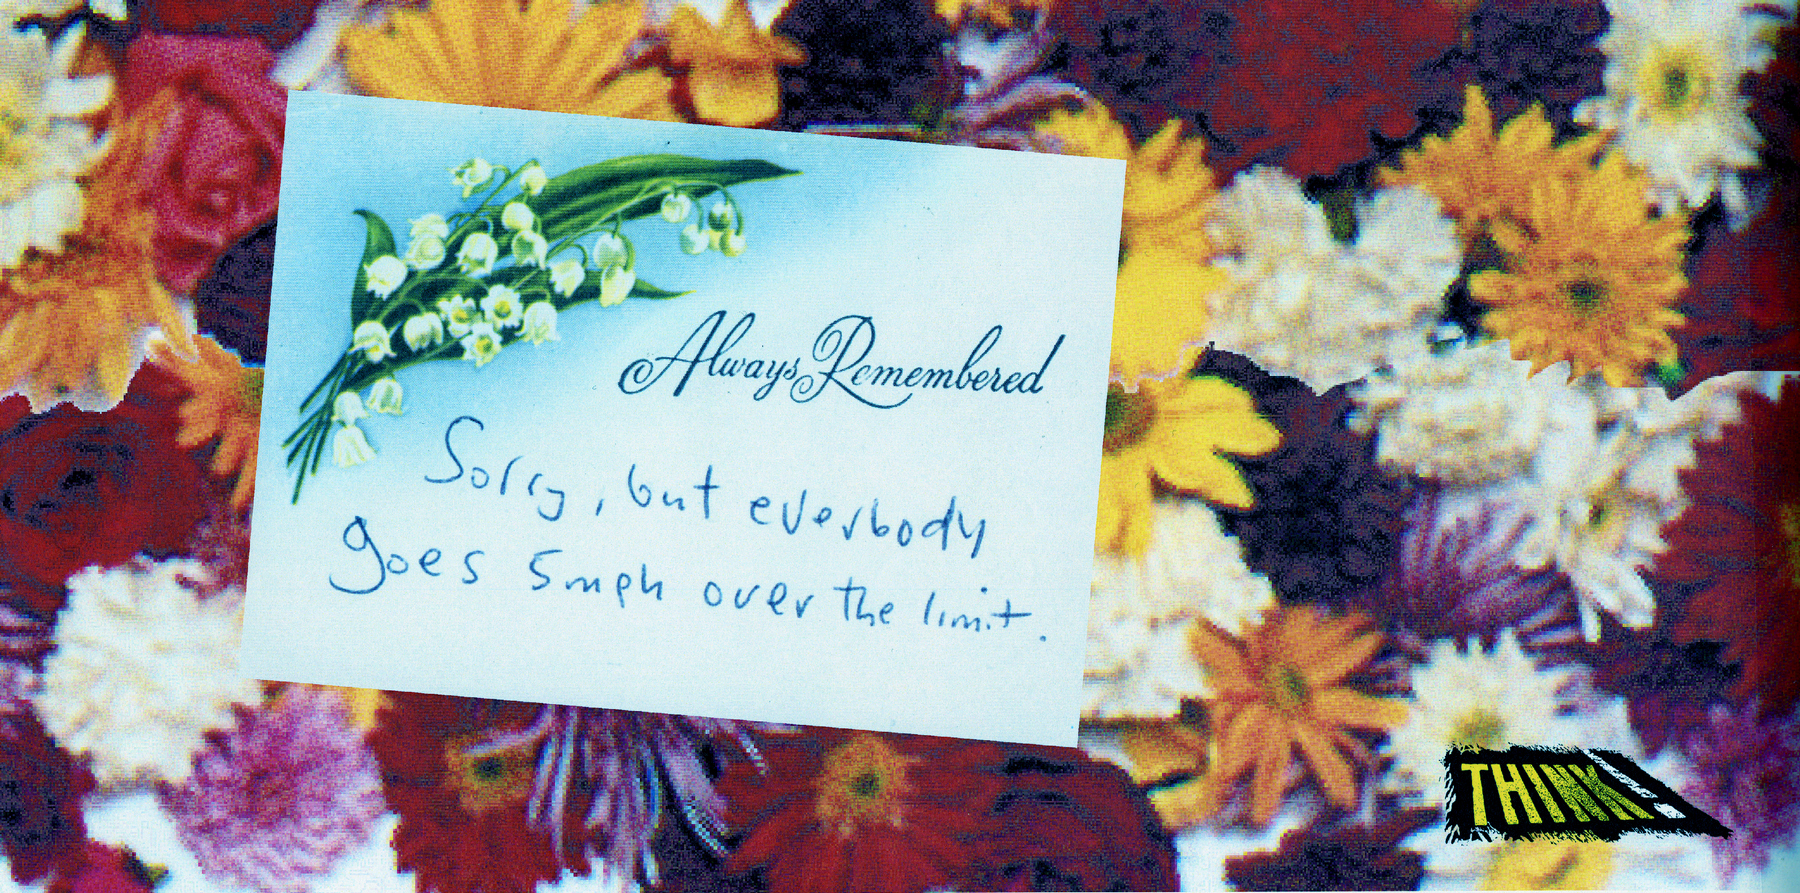 Always Remembered
Sorry, but everbody
goes 5mph over the limit.
THINK!